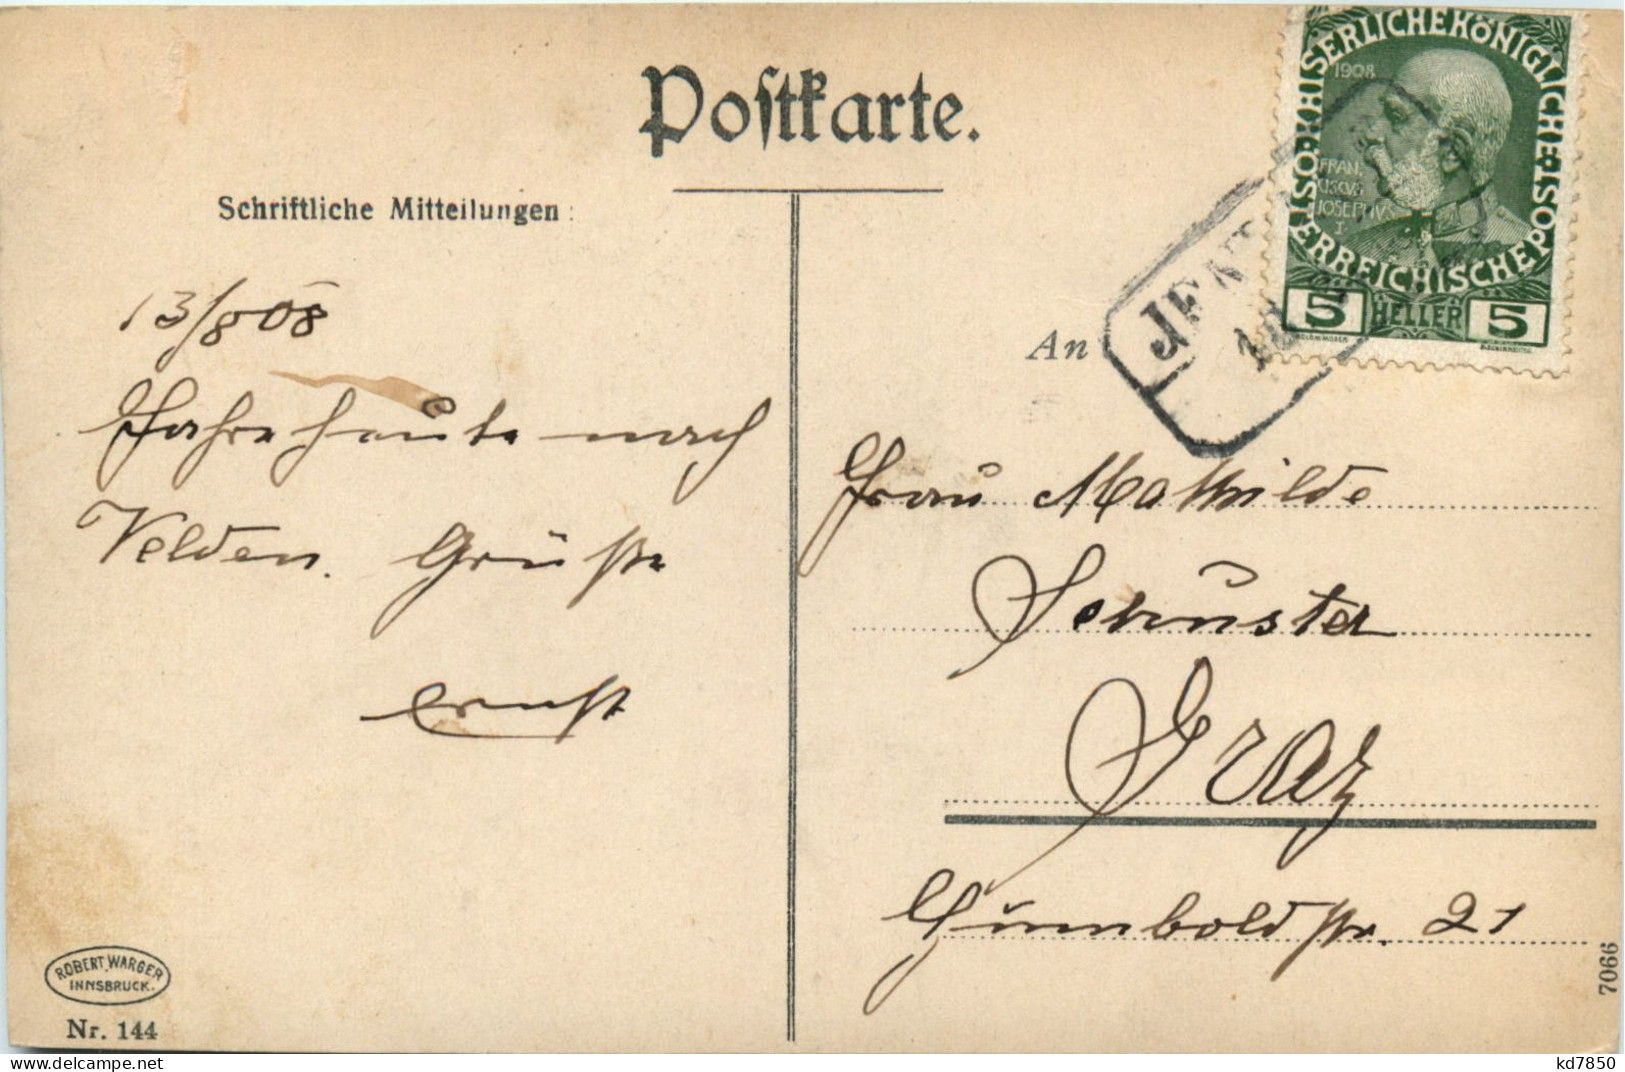 Postkarte.
Schriftliche Mitteilungen:
13/8 08
Fahre heute nach
Velden. Grüße
Ernst
KAISERLICHE KÖNIGLICHE ÖSTERREICHISCHE POST
1908
FRAN
CISCVS
IOSEPHVS
I
5 HELLER 5
An
Frau Mathilde
Schuster
Graz
Humboldstr. 21
ROBERT WARGER
INNSBRUCK.
Nr. 144
7066
kd7850